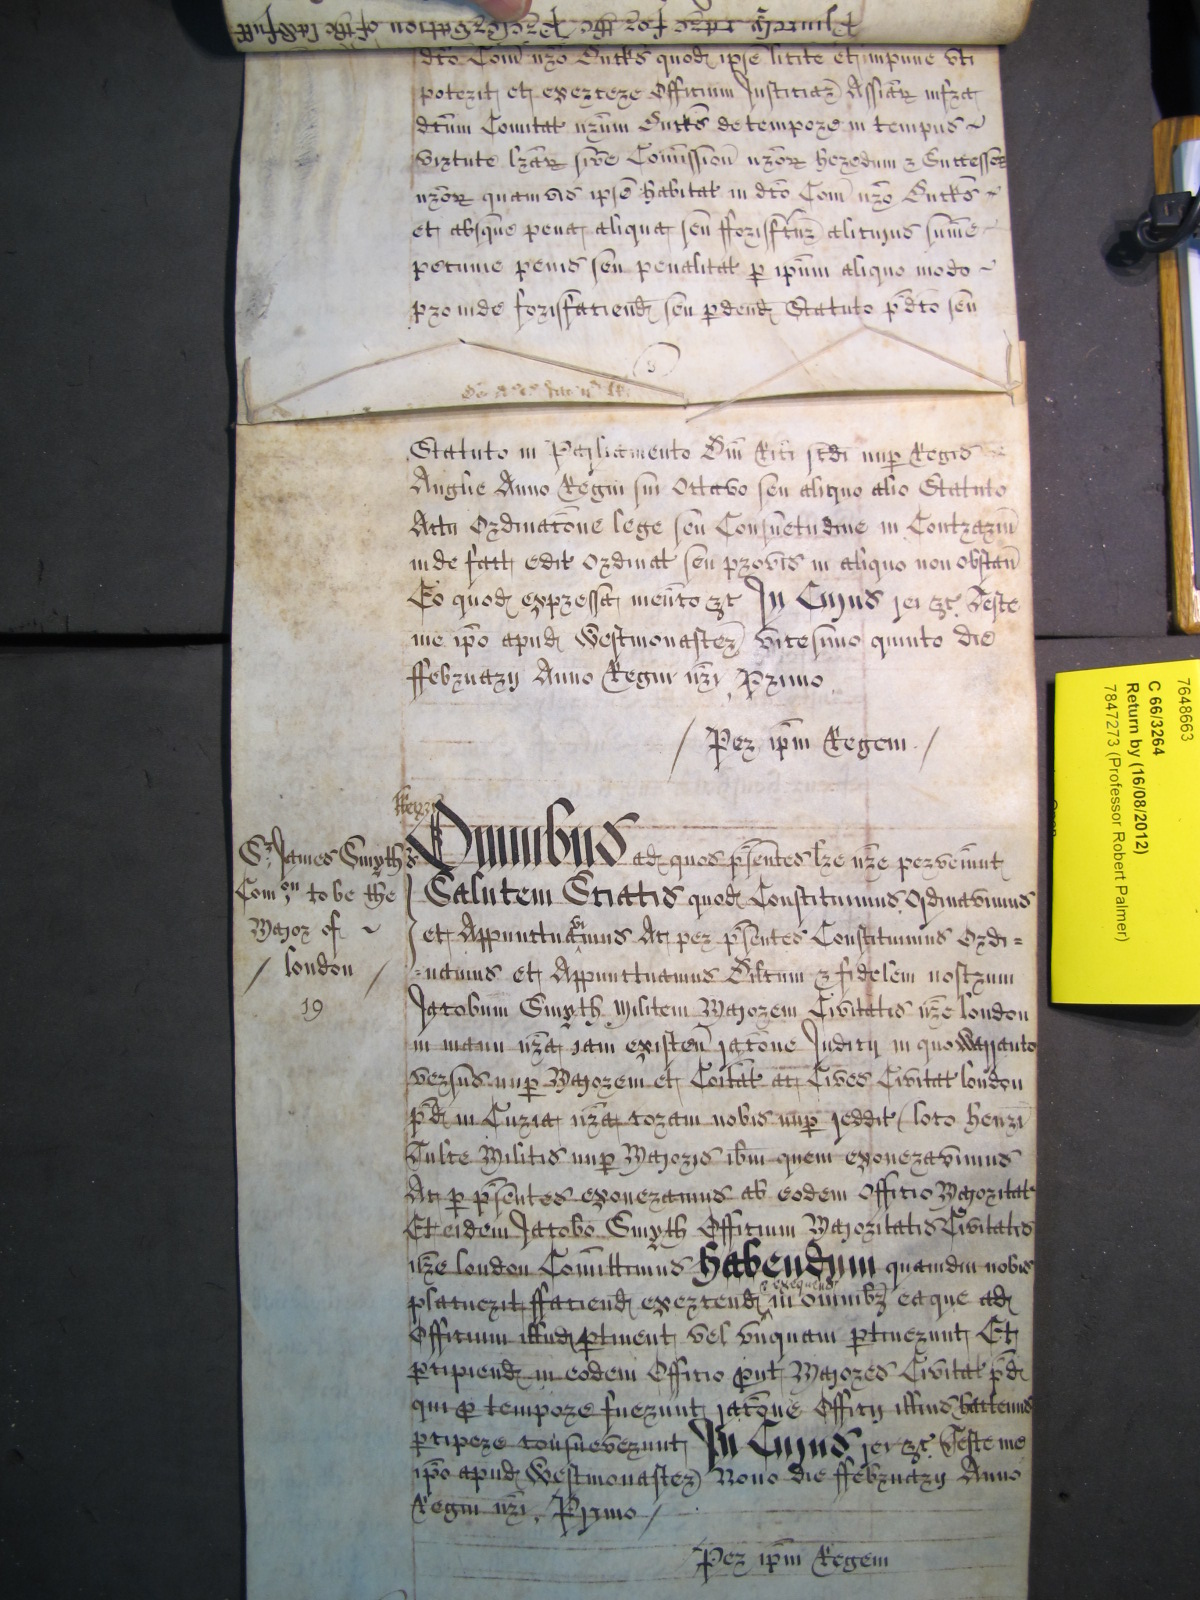 dc̄o Com̄ nr̄o Bucks quod ipse licite et impune uti
poterit et exercere Officium Justiciar̄ Assiar̄ infra
dcūm Comitat nr̄um Bucks de tempore in tempus
virtute lrār sive Com̄ission̄ nrōr heredum & Successor
nrōr quamvis ipse habitat in dc̄o Com̄ nr̄o Bucks
et absque pena aliqua seu fforisfc̄ur̄ alicujus sum̄e
pecunie penis seu penalitat p ip̄um aliquo modo
proinde forisfaciend seu pdend Statuto p̄dc̄o seu
Statuto in Parliamento Dn̄i Rici scd̄i nup Regis
Anglie Anno Regni sui Octavo seu aliquo alio Statuto
Actu Ordinac̄one lege seu Consuetudine in Contrariū
inde fact edit Ordinat seu provis in aliquo non obstan̄
Eo quod expressa mencō &c In Cujus rei &c Teste
me ip̄o apud Westmonaster̄ vicesimo quinto die
ffebruarij Anno Regni nr̄i Primo
Per ip̄m Regem
Sr. James Smyth's
Com.on to be the
Major of
london
19
Omnibus ad quos p̄sentes lre nr̄e pervenīnt
Salutem Sciatis quod Constituimus Ordinavimus
et Appunctuavimus Ac per p̄sentes Constituimus Ordi=
=namus et Appunctuamus Dilcum & fidelem nostrum
Jacobum Smyth Militem Majorem Civitatis nr̄e london
in manu nr̄a jam existen̄ rac̄one Judicij in quo Warranto
versus nup Majorem et Cōitat ac Cives Civitat london
p̄d in Curia nr̄a coram nobis nup reddit loco Henrī
Tulse Militis nup Majoris ibm̄ quem exoneravimus
Ac p p̄sentes exoneramus ab eodem Officio Majoritat
Et eidem Jacobo Smyth Officium Majoritatis Civitatis
nr̄e london Com̄ittimus Habendum quamdiu nobis
placuerit ffaciend exercend & exequend in omnibz eaque ad
Officium illud ptinent vel unquam ptinerunt Et
pcipiend in eodem Officio put Majores Civitat p̄d
qui p tempore fuerunt rac̄one Officij illius hactenus
pcipere consueverunt In Cujus rei &c Teste me
ip̄o apud Westmonaster̄ Nono die ffebruarij Anno
Regni nr̄i Primo
Per ip̄m Regem
7648663
C 66/3264
Return by (16/08/2012)
7847273 (Professor Robert Palmer)